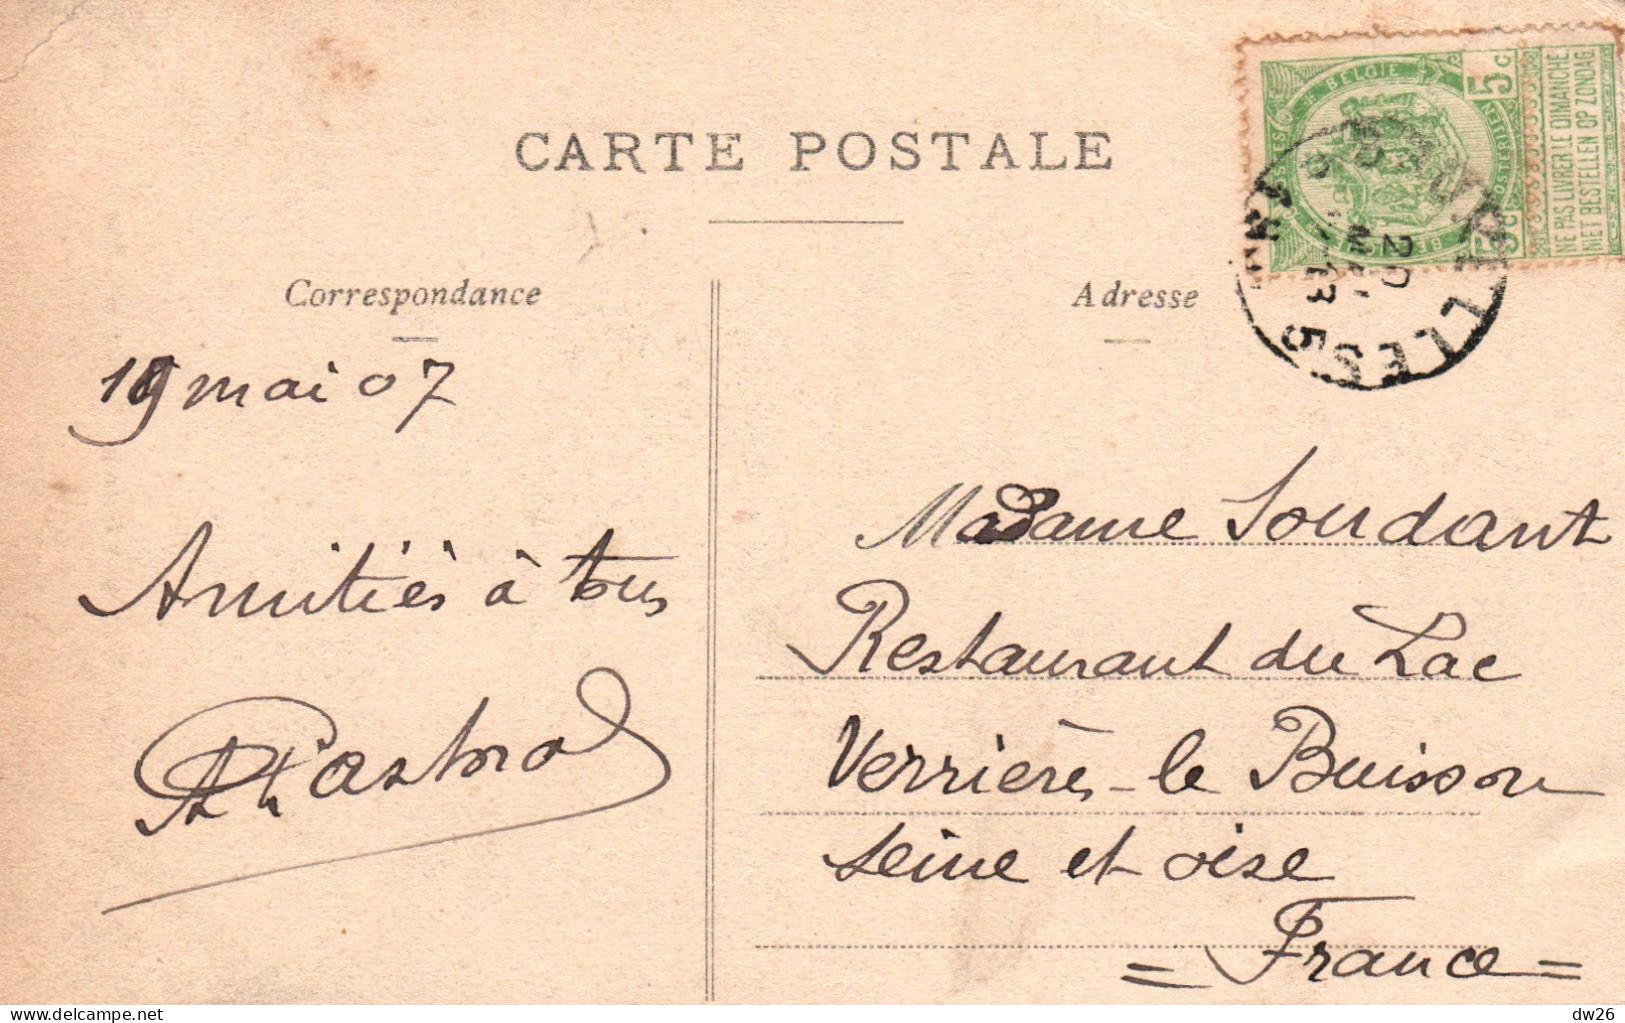 CARTE POSTALE
Correspondance
Adresse
BELGIE
5c
5c
NE PAS LIVRER LE DIMANCHE
NIET BESTELLEN OP ZONDAG
BRUXELLES 5
20
MAI
13
19 mai 07
Amitiés à tous
Madame Soudant
Restaurant du Lac
Verrières-le Buisson
Seine et oise
= France =
dw26